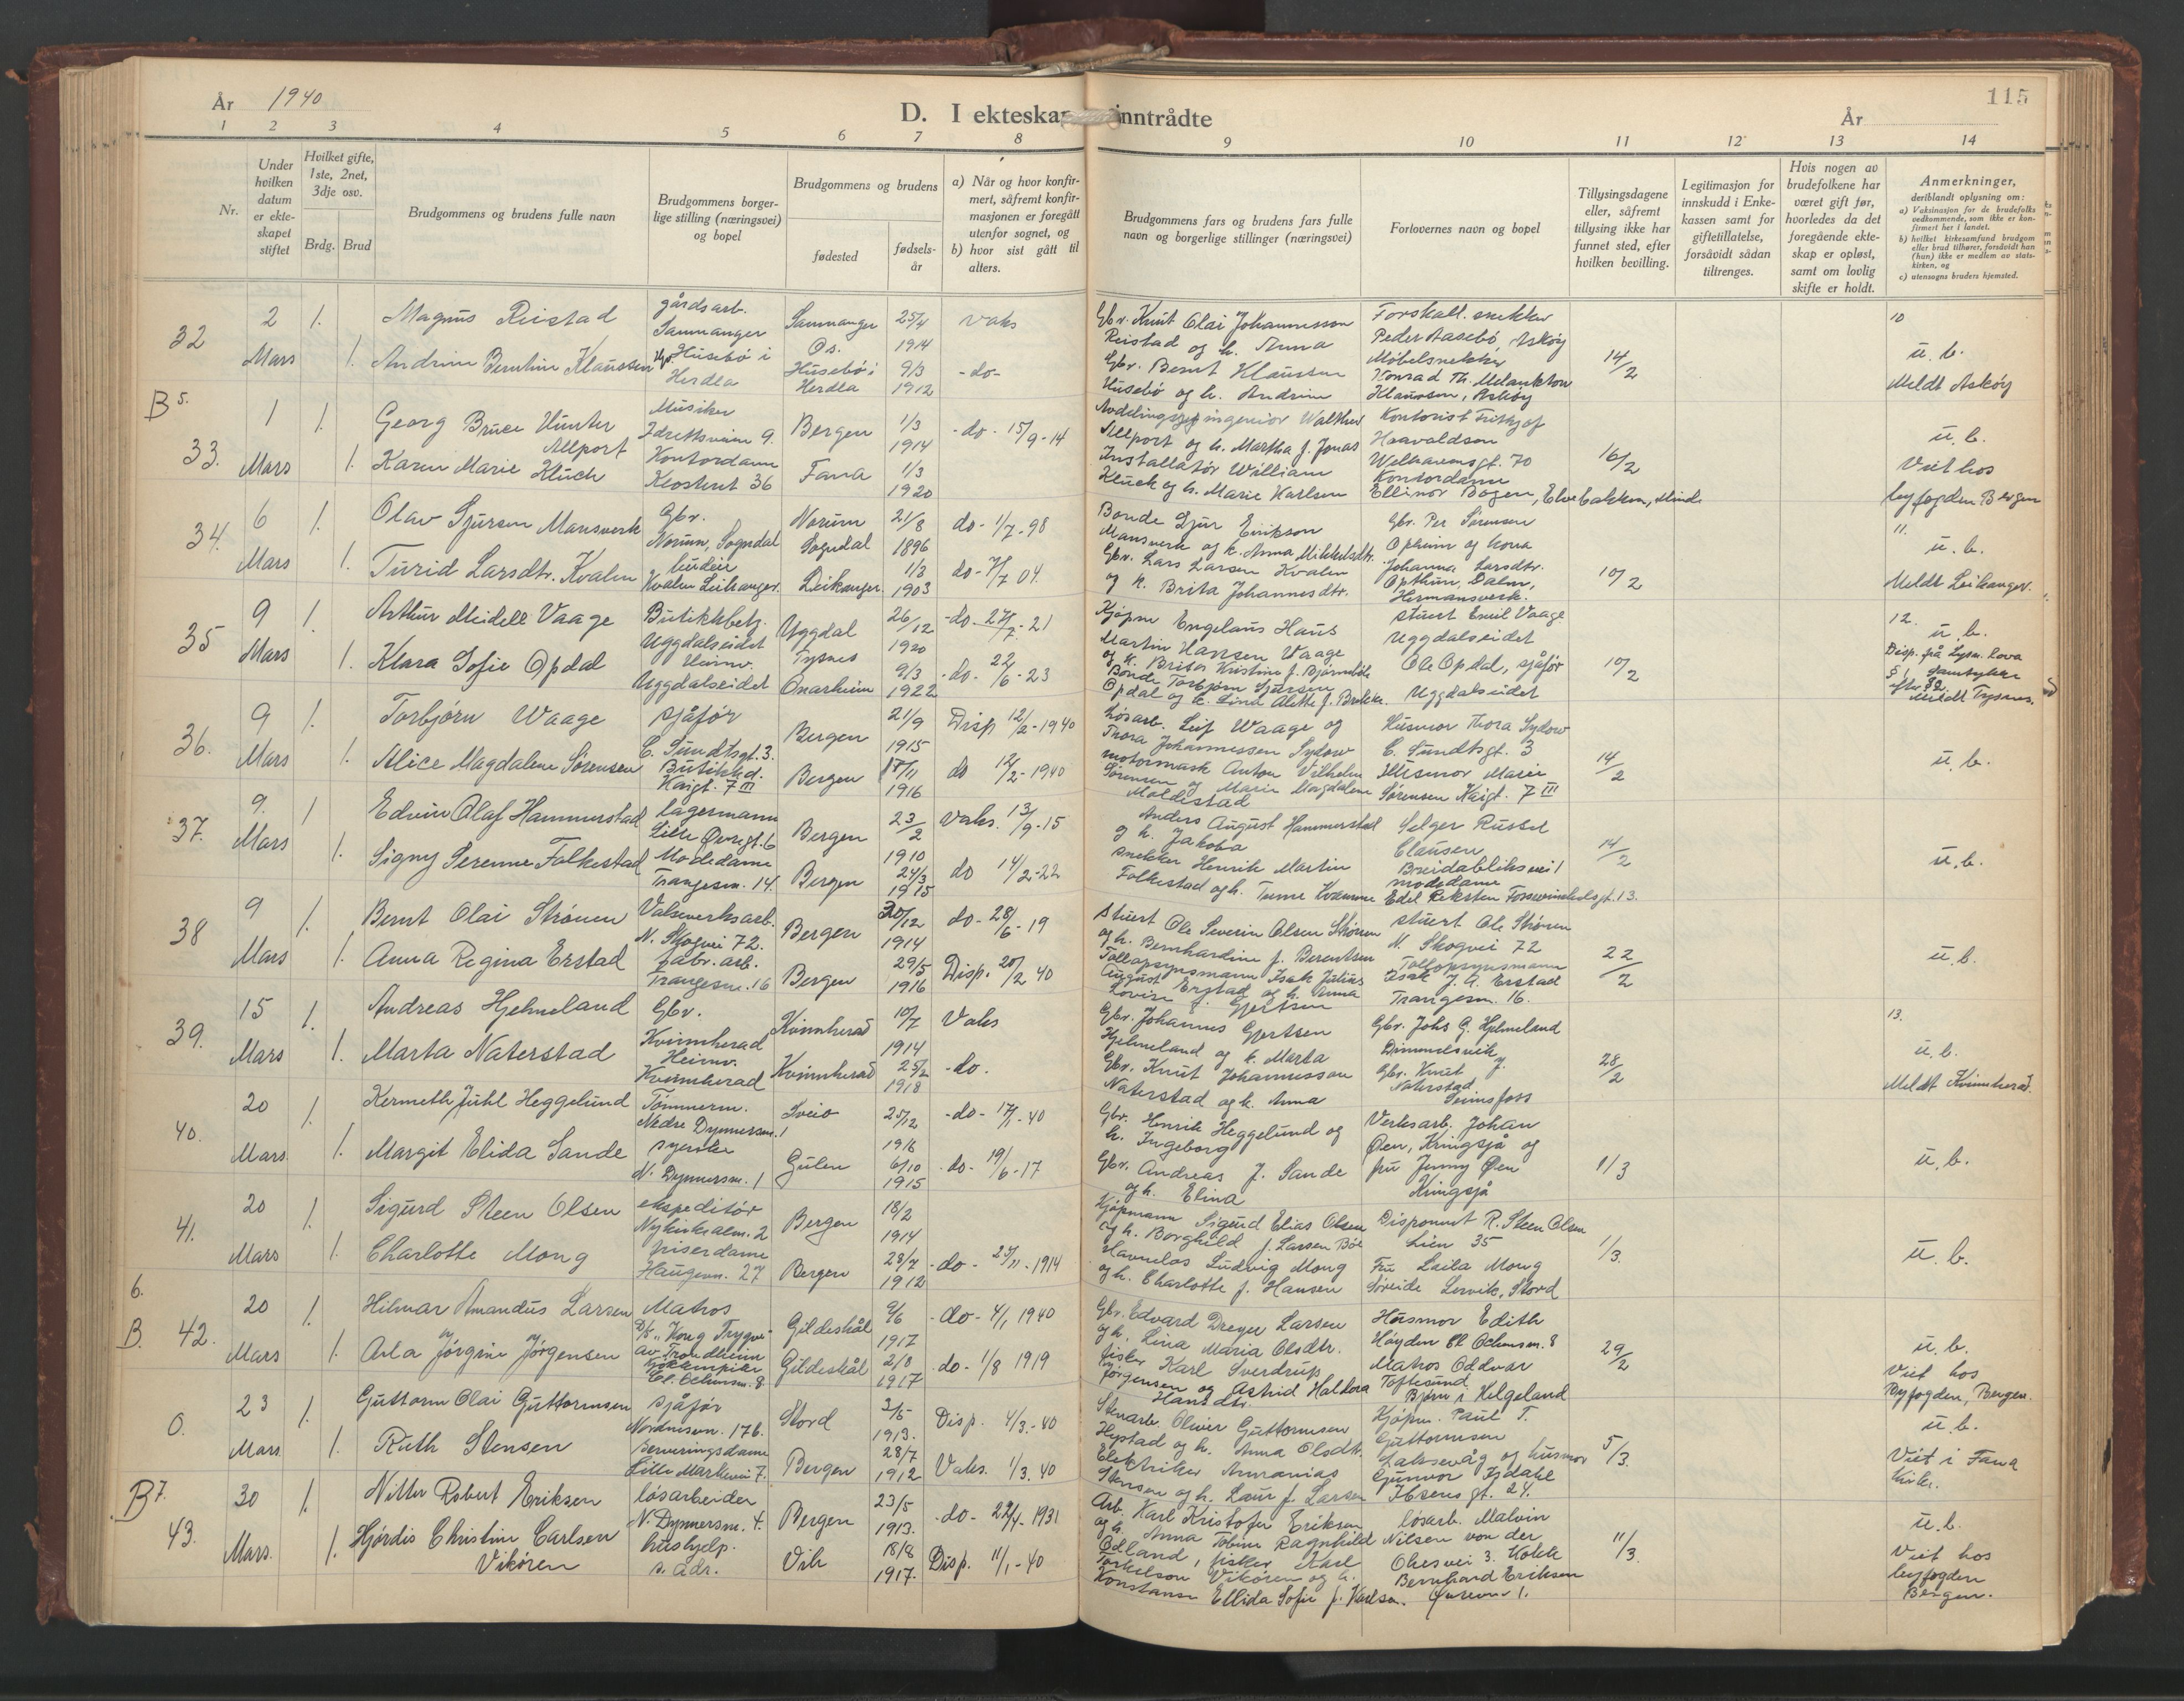 År 1940
D. I ekteska
inntrådte
År
115
1 2 3 4 5 6 7 8 9 10 11 12 13 14
Nr.
Under hvilken datum er ekteskapet stiftet
Hvilket gifte, 1ste, 2net, 3dje osv.
Brdg. Brud
Brudgommens og brudens fulle navn
Brudgommens borgerlige stilling (næringsvei) og bopel
Brudgommens og brudens
fødested
fødselsår
a) Når og hvor konfirmert, såfremt konfirmasjonen er foregått utenfor sognet, og
b) hvor sist gått til alters.
Brudgommens fars og brudens fars fulle navn og borgerlige stillinger (næringsvei)
Forlovernes navn og bopel
Tillysingsdagene eller, såfremt tillysing ikke har funnet sted, efter hvilken bevilling.
Legitimasjon for innskudd i Enkekassen samt for giftetillatelse, forsåvidt sådan tiltrenges.
Hvis nogen av brudefolkene har været gift før, hvorledes da det foregående ekteskap er opløst, samt om lovlig skifte er holdt.
Anmerkninger, deriblandt oplysning om:
a) Vaksinasjon for de brudefolks vedkommende, som ikke er konfirmert her i landet.
b) hvilket kirkesamfund brudgom eller brud tilhører, forsåvidt han (hun) ikke er medlem av statskirken, og
c) utensogns bruders hjemsted.
32
2 Mars 1. 1.
Magnus Reistad
Andrine Berntine Klaussen
gårdsarb.
Samnanger
Husebö i
Herdla
Samnanger
Os.
Husebö i
Herdla
25/4
1914
9/3
1912
Vaks
-do-
Gbr. Knut Olai Johannesson
Reistad og h. Anna
Gbr. Bernt Klausen
Husebö og h. Andrine
Forskall. snekker
Peder Aasebö, Askøy
Møbelsnekker
Konrad Th. Melankton
Klausson, Askøy
14/2
10
u. b.
Meldt Askøy
B 5.
33.
1 Mars 1. 1.
Georg Bruce Hunter
Allport
Karen Marie Kluck
Musiker
Idrettsveien 9.
Kontordame
Klosteret 36
Bergen
Fana
1/3
1914
1/3
1920
-do- 15/9-14
Avdelingssjef ingeniør Walther
Allport og h. Martha f. Jonas
Installatør William
Kluck og h. Marie Karlsen
Kontorist Frithjof
Haavaldsen
Welhavensgt. 70
Kontordame
Ellinor Bogen, Elvebakken, Minde
16/2
u. b.
Viet hos
byfogden Bergen
34.
6 Mars 1. 1.
Olav Sjursen Mansverk
Turid Larsdtr. Kvalen
Gbr.
Norum, Sogndal
budeie
Kvalen Leikanger.
Norum
Sogndal
Leikanger.
21/8
1896
1/3
1903
do- 1/7-98
do- 7/7 04.
Bonde Sjur Eirikson
Mansverk og k. Anna Mikkelsdtr.
Gbr. Lars Larsen Kvalen
og k. Brita Johannesdtr.
Gbr. Per Sørensen
Opheim og kona
Johanna Larsdtr.
Opthun, Dalm,
Hermansverk.
10/2
11.
u. b.
Meldt Leikanger.
35
9 Mars 1. 1.
Arthur Meidell Vaage
Klara Sofie Opdal
Butikkbetj.
Uggdalseidet
Heimv.
Uggdalseidet
Uggdal
Tysnes
Onarheim
26/12
1920
9/3
1922
-do- 27/7-21
-do- 22/6-23
Kjøpm Engelaus Hans
Martin Hansen Vaage
og k. Brita Kristine f. Bjørnebøle
Bonde Torbjørn Sjursen
Opdal og k. Lina Alette f. Brekke.
stuert Emil Vaage
Uggdalseidet
Ole Opdal, sjåfør
Uggdalseidet
10/2
12.
u. b.
Meldt Tysnes.
36.
9 Mars 1. 1.
Torbjørn Waage
Alice Magdalene Sørensen
sjåfør
C. Sundtsgt. 3.
Butikkd.
Kaigt. 7 III
Bergen
Bergen
21/9
1915
1916
Disp 12/2-1940
do 12/2-1940
Løsarb. Leif Waage og
Thora Johannessen Sydow
motormask Anton Vilhelm
Sørensen og Marie Magdalene
Moldestad
Husmor Thora Sydow
C. Sundtsgt. 3
Husmor Marie
Sørensen Kaigt. 7 III
14/2
u. b.
37.
9. Mars 1 1.
Edvin Olaf Hammerstad
Signy Serenne Falkestad
lagermann
Lille Øvregt. 6
Modedame
Trangesm. 14.
Bergen
Bergen
23/2
1910
24/3
1915
Vaks. 13/9-15
do 14/2-22
Anders August Hammerstad
og h. Jakoba
snekker Henrik Martin
Falkestad og h. Turne Kvamme
Selger Russel
Clausen
Breidabliksvei 1
modedame
Edel Reksten Fosswinckelsgt. 13.
14/2
u. b.
38
9 Mars 1. 1.
Bernt Olai Strønen
Anna Regina Erstad
Valseverksarb.
N. Skogvei 72.
fabr. arb.
Trangesm. 16
Bergen
Bergen
20/12
1914
29/5
1916
do- 28/6-19
Disp. 20/2 40
Stuert Ole Severin Olsen Strønen
og h. Bernhardine f. Berentsen
Tollopsynsmann Isak Julius
August Erstad og h. Anna
Lovise f. Gjertsen
stuert Ole Strønen
N. Skogvei 72
Tollopsynsmann
Isak J. A. Erstad
Trangesm. 16.
22/2
u. b.
39.
15 Mars 1. 1.
Andreas Hjelmeland
Marta Naterstad
Gbr.
Kvinnherad
Heimv.
Kvinnherad
Kvinnherad
Kvinnherad
10/7
1914
25/2
1918
Vaks
-do.
Gbr. Johannes Gjertsen
Hjelmeland og k. Marta
Gbr. Knut Johannesson
Naterstad og k. Anna
Gbr. Johs G. Hjelmeland
Dimmelsvik
Gbr. Knut J.
Naterstad
Seimsfoss
28/2
13.
u. b.
Meldt Kvinnherad.
40.
20 Mars 1. 1.
Kenneth Juhl Heggelund
Margit Elida Sande
Tömmerm.
Nedre Dynnersm. 1
syerske
N. Dynnersm. 1
Sveio
Gulen
25/12
1916
6/10
1915
-do- 17/1-40
-do- 19/6-17
Gbr. Henrik Heggelund og
h. Ingeborg
Gbr. Andreas J. Sande
og h. Elina
Verksarb. Johan
Øen, Kringsjå og
fru Jenny Øen
Kringsjå
1/3
u. b.
41.
20 Mars 1. 1.
Sigurd Steen Olsen
Charlotte Mong
ekspeditør
Nykirkealm. 2
friserdame
Haugevn. 27
Bergen
Bergen
18/2
1914
28/7
1912
-do- 23/11-1914
Kjøpmann Sigurd Elias Olsen
og h. Borghild f. Larsen Böe
Havnelos Ludvig Mong
og h. Charlotte f. Hansen
Disponent R. Steen Olsen
Lien 35
Fru Laila Mong
Søreide Lervik, Stord
1/3.
u. b.
6.
B. 42.
20 Mars 1. 1.
Hilmar Amandus Larsen
Arla Jørgine Jørgensen
Matros
D/S "Kong Trygve"
av Trondheim
Gildeskål
Gildeskål
9/6
1917
2/8
1917
-do- 4/1 1940
-do- 1/8 1919
Gbr. Edvard Dreyer Larsen
og h. Lina Maria Olsdtr.
fisker Karl Sverdrup
Jørgensen og Astrid Haldora
Hansdtr.
Husmor Edith
Høyden
Matros Oddvar
Toftesund
Bjørn i Helgeland
29/2
u. b.
Viet hos
Byfogden, Bergen.
0.
23 Mars 1. 1.
Guttorm Olai Guttormsen
Ruth Stensen
sjåfør
Nordnesvn. 176.
serveringsdame
Lille Markevei 7.
Stord
Bergen
3/5
1913.
28/7
1912
Disp. 4/3-40
Vaks. 1/3 40
Stuvarb. Oliver Guttormsen
Hystad og h. Anna Olsdtr.
Elektriker Ananias
Stensen og h. Laur f. Larsen
Kjøpm. Paul T.
Guttormsen
Laksevåg og husmor
Gunvor Isdahl
Ibsensgt. 24.
5/3.
u. b.
Viet i Fana
Kirke.
B 7.
43.
30 Mars. 1. 1.
Nitter Robert Eriksen
Hjørdis Christine Carlsen
Vikøren
løsarbeider
N. Dynnersm. 4.
hushjelp.
s. adr.
Bergen
Vik
23/5
1913.
18/8
1917.
-do- 22/4-1931
Disp. 11/1-40
Arb. Karl Kristofer Eriksen
og h. Anna Tobine Ragnhild
Ødland, fisker Karl
Torkelson Vikøren og h.
Konstanse Ellida Sofie f. Karlsen.
løsarb. Malvin
Nilsen von der
Ohesvei 3. Kokk
Bernhard Eriksen
11/3.
u. b.
Viet hos
byfogden
Bergen.